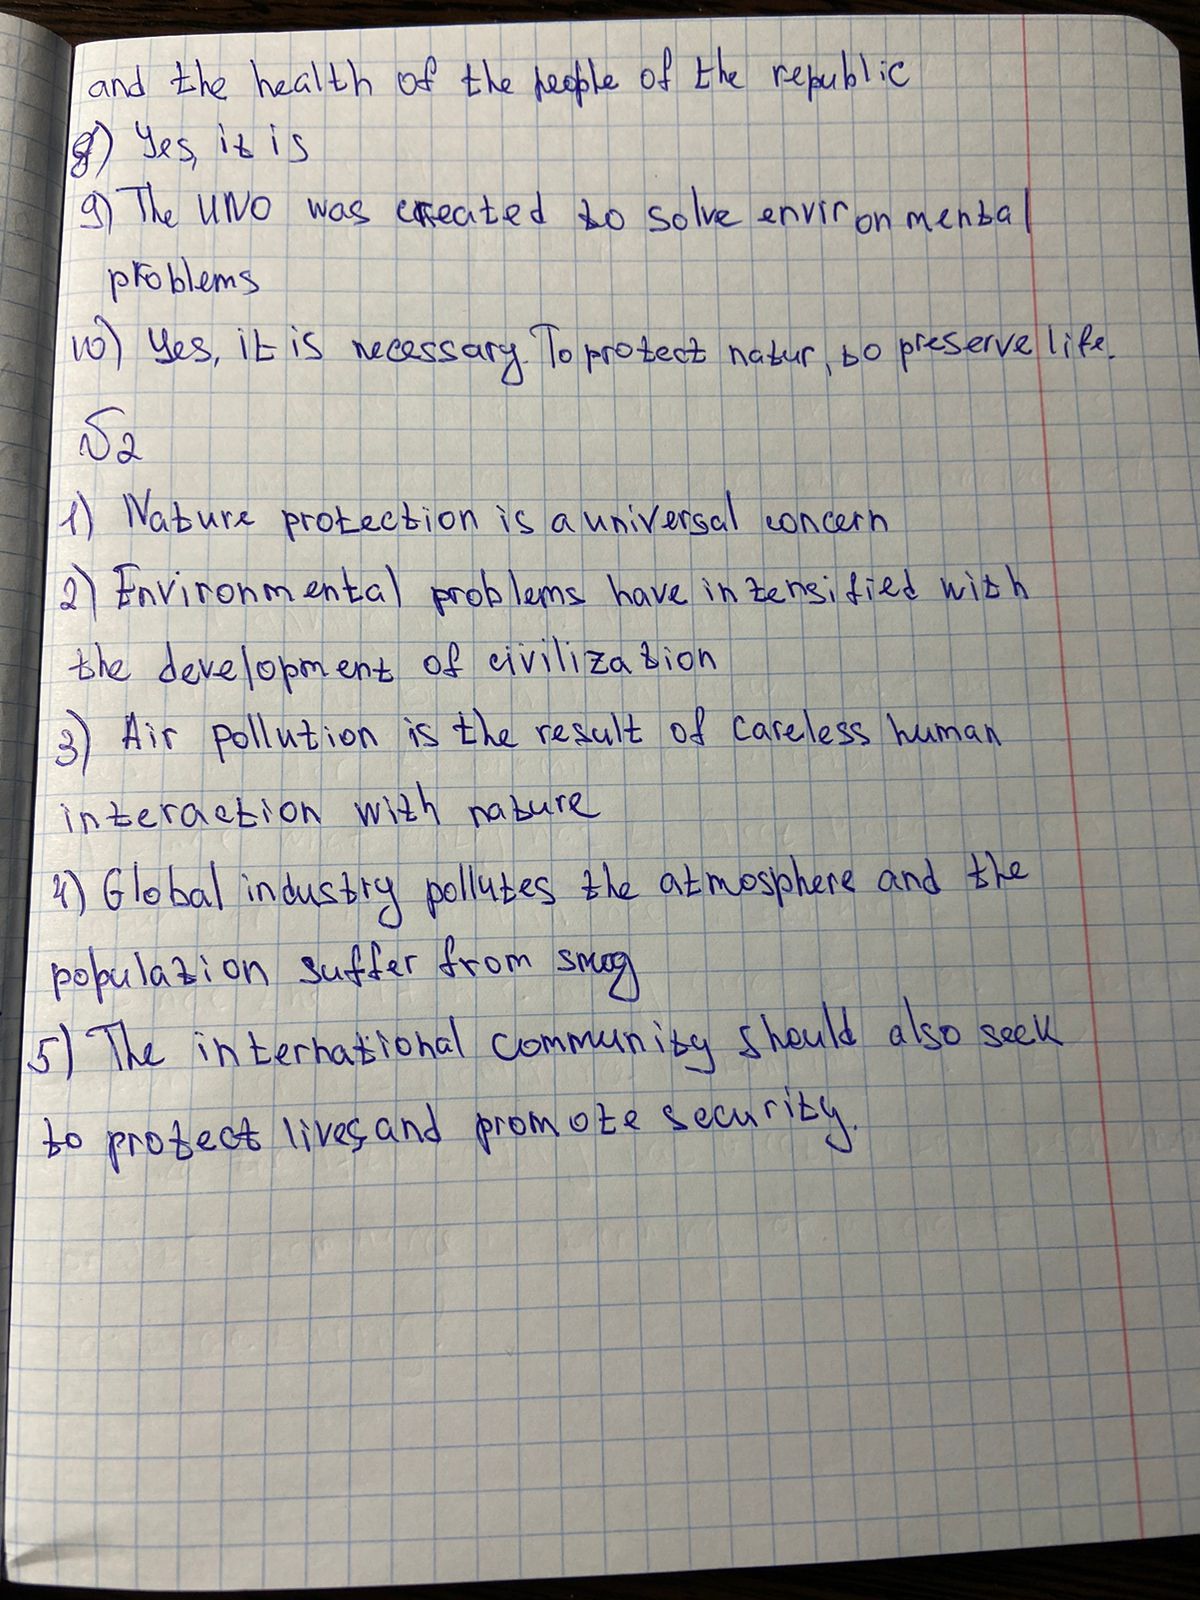 and the health of the people of the republic
8) Yes, it is
9) The UNO was created to solve environmental
problems
10) Yes, it is necessary. To protect natur, to preserve life.
№2
1) Nature protection is a universal concern
2) Environmental problems have intensified with
the development of civilization
3) Air pollution is the result of careless human
interaction with nature
4) Global industry pollutes the atmosphere and the
population suffer from smog
5) The international community should also seek
to protect lives and promote security.